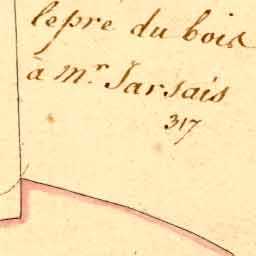 lepre du bois
à mr Jarsais
317